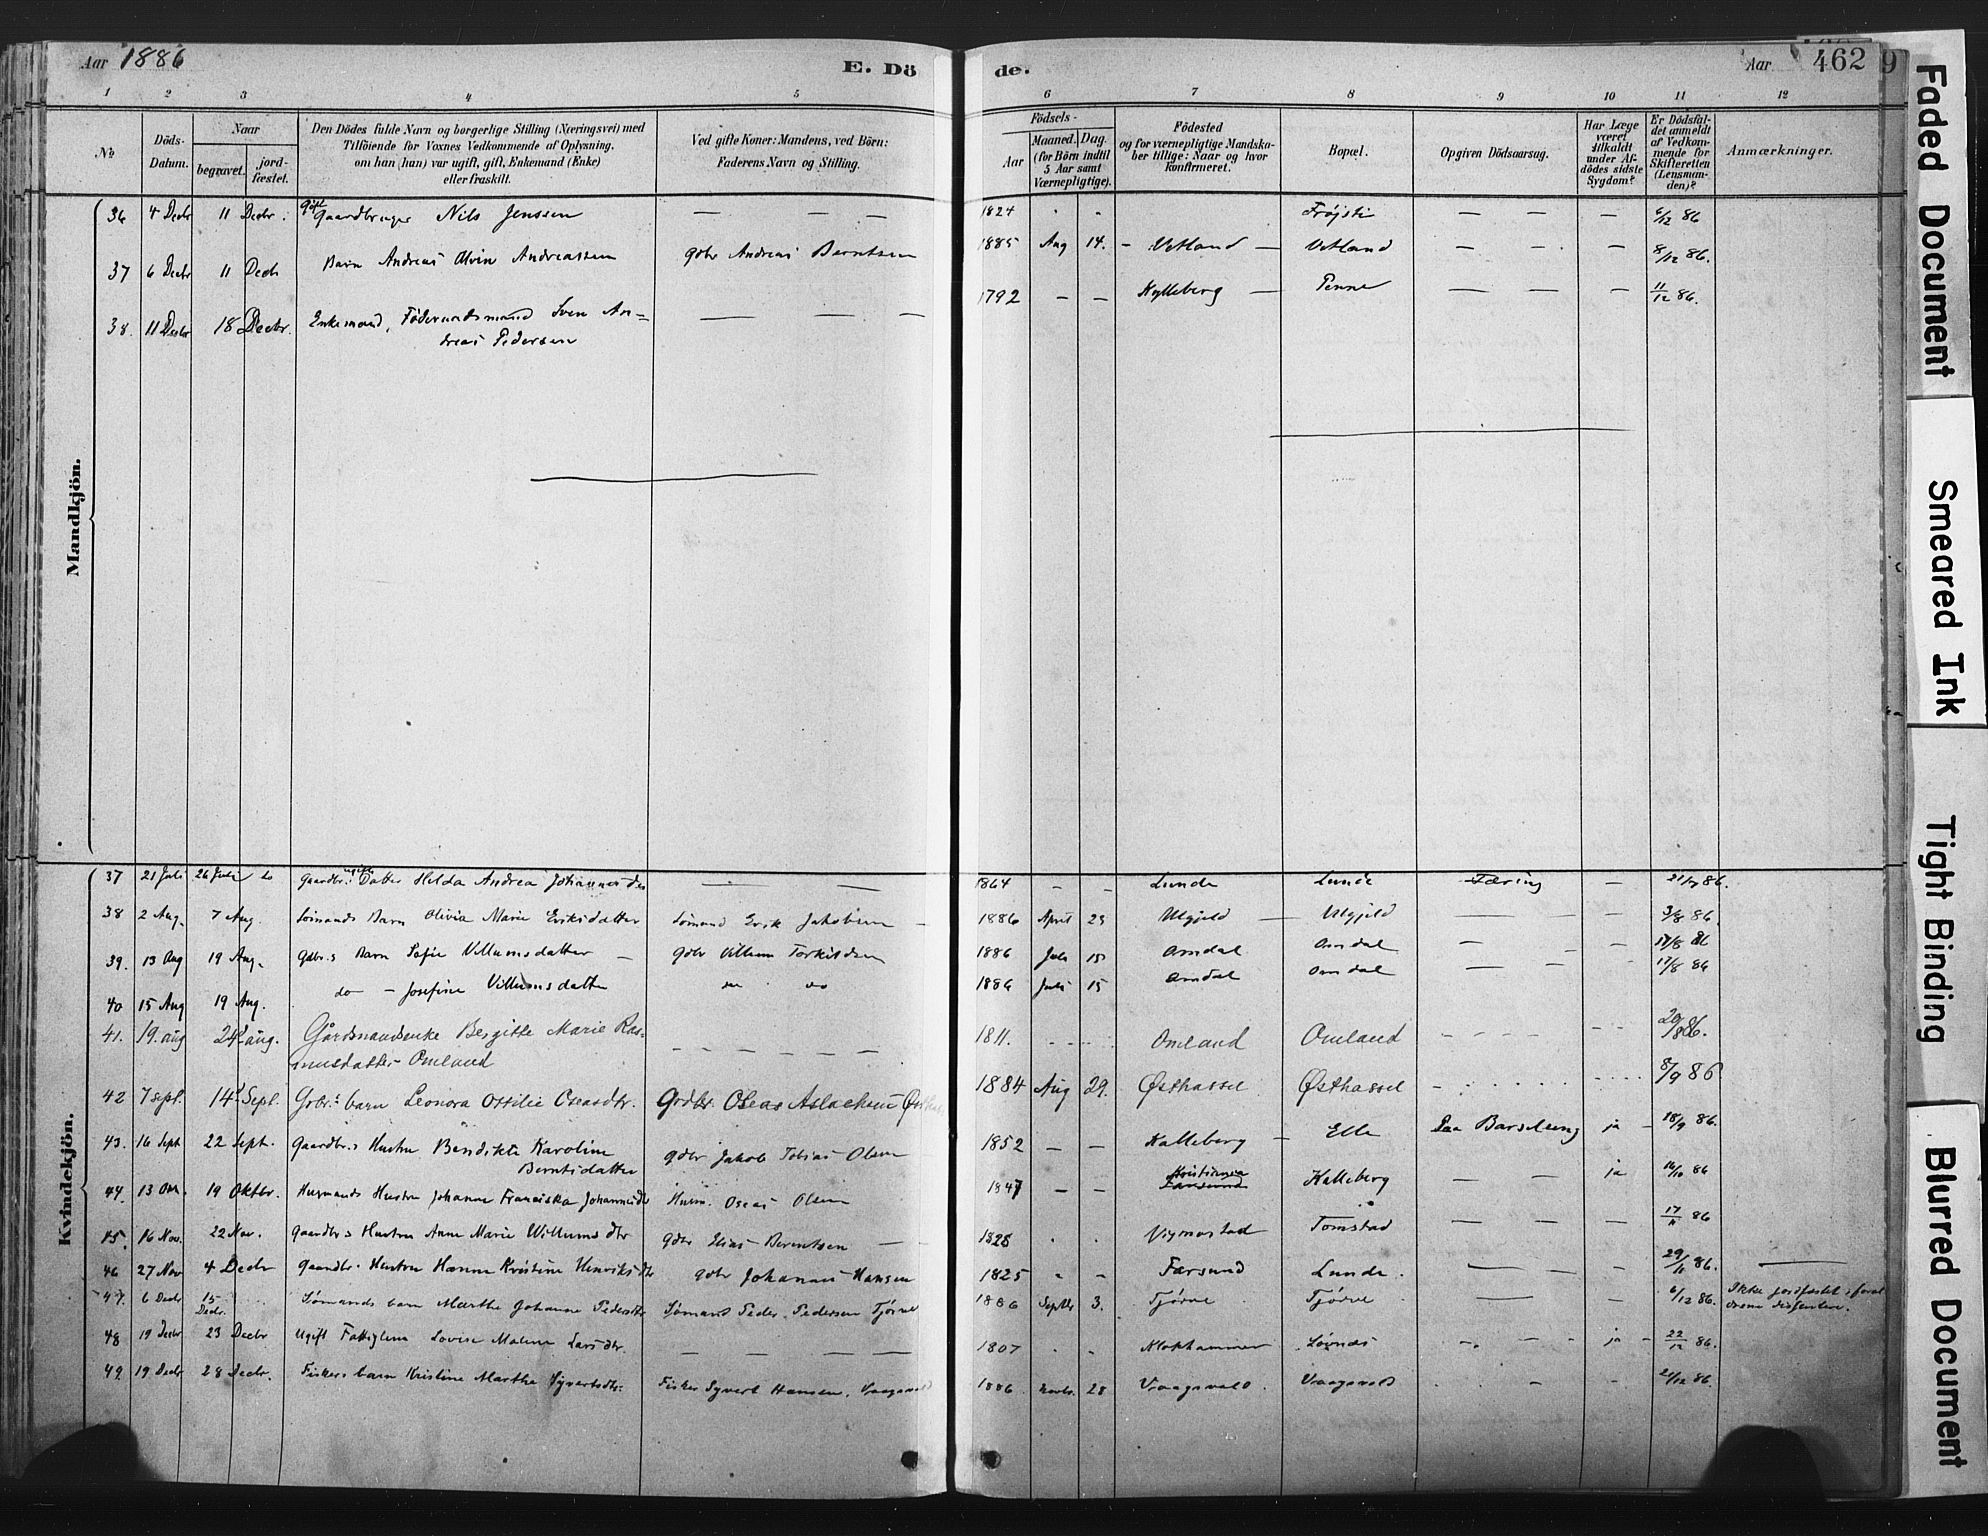 Aar 1886
E. Dö
de.
Aar
462
9
1 2 3 4 5 6 7 8 9 10 11 12
No
Döds-
Datum.
Naar
begravet.
jord-
fæstet.
Den Dödes fulde Navn og borgerlige Stilling (Næringsvei) med
Tilföiende for Voxnes Vedkommende af Oplysning.
om han (hun) var ugift, gift, Enkemand (Enke)
eller fraskilt.
Ved gifte Koner: Mandens, ved Börn:
Faderens Navn og Stilling.
Födsels-
Aar
Maaned.
Dag
(for Börn indtil
5 Aar samt
Værnepligtige).
Födested
og for værnepligtige Mandska-
ber tillige: Naar og hvor
konfirmeret.
Bopæl.
Opgiven Dödsaarsag.
Har Læge
været
tilkaldt
under Af-
dödes sidste
Sygdom?
Er Dödsfal-
det anmeldt
af Vedkom-
mende for
Skifteretten
(Lensman-
den)?
Anmærkninger.
Mandkjön.
36 4 Decbr 11 Decbr. Gift Gaardbruger Nils Jenssen — — — 1824 Frøjsti — — — 6/12 86
37 6 Decbr 11 Decbr Barn Andreas Alvin Andreassen gdbr Andreas Berntsen 1885 Aug 14. – Vetland — Vetland — — — 8/12 86.
38. 11 Decbr 18 Decbr. Enkemand, Föderaadsmand Sven An-
dreas Pedersen — — — 1792 — — Kalleberg — Penne — — — 11/12 86.
Kvindekjön.
37 21 Juli 26 Juli do Gaardbr. ugift Datter Helda Andrea Johannesdtr — — 1864 — — Lunde Lunde Tæring — 21/7 86.
38 2 Aug. 7 Aug. Sömands Barn Olivia Marie Eriksdatter Sömand Erik Jakobsen — 1886 April 29 Ulgjeld — Ulgjeld — — — 3/8 86.
39. 13 Aug 19 Aug. Gdbr.s Barn Sofie Villumsdatter — gdbr Villum Torkildsen 1886 Juli 15 Omdal Omdal — — — 17/8 86
40 15 Aug 19 Aug. do – Josefine Villumsdatter do do 1886 Juli 15 Omdal Omdal — — — 17/8 86
41. 19. aug 24 aug. Gårdmandsenke Bergitte Marie Ras-
musdatter Omland — — — — — 1811. Omland Omland 20/8 86.
42 7 sept. 14 Sept. Grbr.s barn Leonora Ottilie Oseasdtr. Grdbr. Oseas Aslaksen Østhassel 1884 Aug 29. Østhassel Østhassel 8/9 86
43. 16 Sept 22 Sept. Gaardbr.s Hustru Bendikte Karoline
Berntsdatter gdbr Jakob Tobias Olsen 1852 — — Kalleberg — Elle Paa Barselseng ja — 18/9 86.
44. 13 Okt. 19 Oktbr. Husmands Hustru Johanne Franciska Johannesdtr Husm. Oseas Olsen 1847 — — Kristiansa Kalleberg — — ja 16/10 86
45. 16 Nov. 22 Nov. Gaardbr.s Hustru Anne Marie Willumsdtr gdbr Elias Berentsen — 1828 Vigmostad Tomstad — — — 17/11 86
46 27 Nov 4 Decbr Gaardbr. Hustru Hanne Kristine Henriksdtr gdbr Johannes Hansen 1825 Farsund Lunde. — — — 29/11 86. —
47. 6 Decbr 15 Decbr. Sömands barn Marthe Johanne Pedersdtr Sömand Peder Pedersen Tjörve 1886 Septbr 3. Tjörve Tjörve — — 6/12 86. Ikke jordfæstet,
48 19 Decbr 23 Decbr Ugift Fattiglem Lovise Malene Larsdtr. — — — — 1807 Klokhammer Løvnes — — ja — 22/12 86.
49. 19 Decbr 28 Decbr. Fiskers barn Kristine Marthe Syvertsdtr. Fisker Syvert Hansen, Vraagsvold 1886 Novbr. 28 Vraagsvold. Vraagsvold — — 21/12 86.
Faded Document
Smeared Ink
Tight Binding
Blurred Document